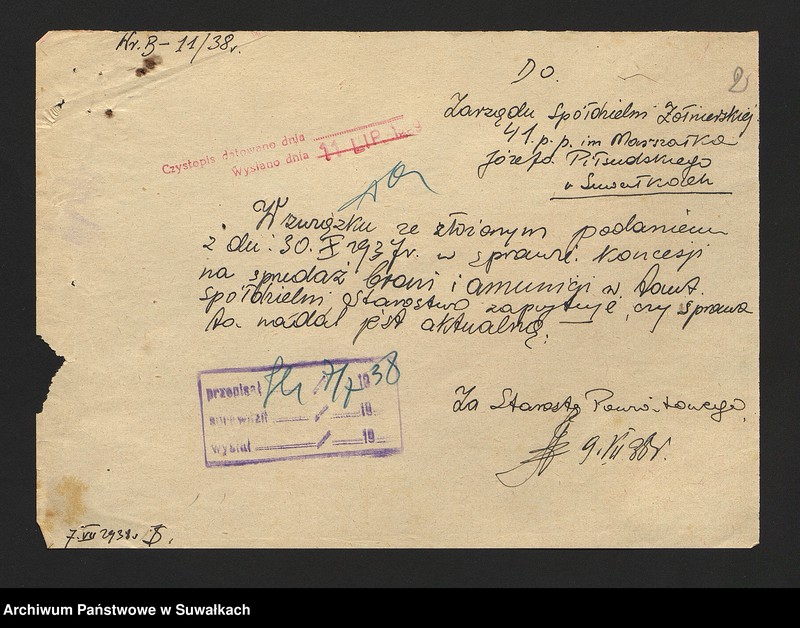 Nr. B-11/38r.
Do.
Zarządu Spółdzielni Żołnierskiej
41 p.p. im Marszałka
Józefa Piłsudskiego
w Suwałkach
Czystopis datowano dnia
Wysłano dnia 11 LIP.
W związku ze złożonym podaniem
z dn. 30. X 1937r. w sprawie koncesji
na sprzedaż broni i amunicji w tamt.
Spółdzielni Starostwo zapytuje, czy sprawa
ta nadal jest aktualną.
przepisał 7/7 1938
sprawdził 19
wysłał 19
Za Starostę Powiatowego
9. VII 38r.
7. VII 1938r
Archiwum Państwowe w Suwałkach